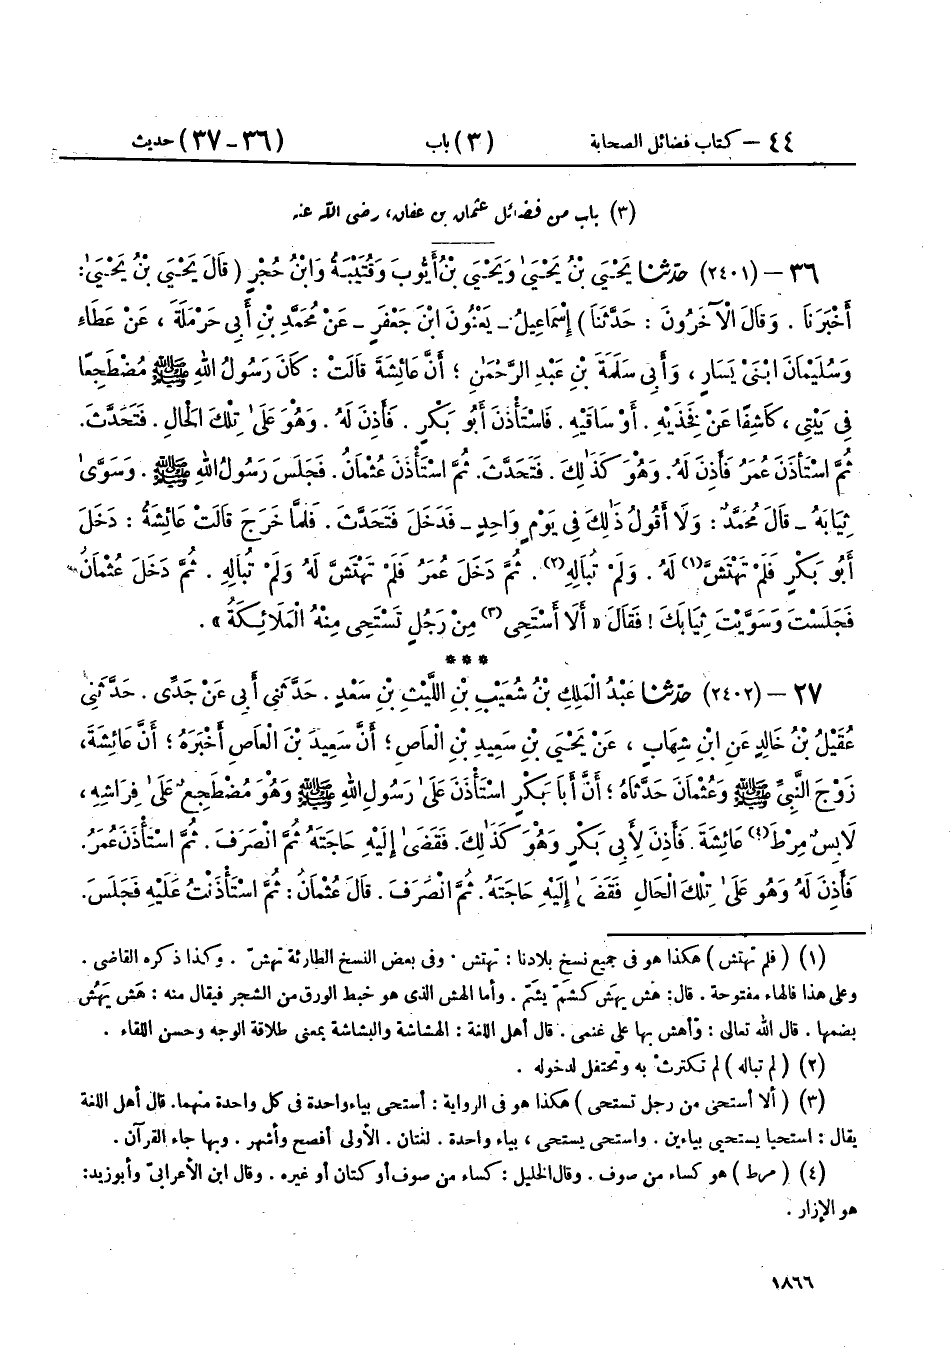 ٤٤ – كتاب فضائل الصحابة (٣) باب (٣٦-٣٧) حديث
(٣) باب من فضائل عثمان بن عفان، رضى الله عنه
٣٦ – (٢٤٠١) حَدَّثَنَا يَحْيَىٰ بْنُ يَحْيَىٰ وَيَحْيَى بْنُ أَيُّوبَ وَقُتَيْبَةُ وَابْنُ حُجْرٍ ( قَالَ يَحْيَى بْنُ يَحْيَىٰ:
أَخْبَرَنَا . وَقَالَ الْآخَرُونَ : حَدَّثَنَا ) إِسْمَاعِيلُ – يَعْنُونَ ابْنَ جَعْفَرٍ – عَنْ مُحَمَّدِ بْنِ أَبِي حَرْمَلَةَ ، عَنْ عَطَاءٍ
وَسُلَيْمَانَ ابْنَيْ يَسَارٍ ، وَأَبِي سَلَمَةَ بْنِ عَبْدِ الرَّحْمَٰنِ ؛ أَنَّ عَائِشَةَ قَالَتْ : كَانَ رَسُولُ اللهِ ﷺ مُضْطَجِعًا
فِي بَيْتِي ، كَاشِفًا عَنْ فَخِذَيْهِ . أَوْ سَاقَيْهِ . فَاسْتَأْذَنَ أَبُو بَكْرٍ . فَأَذِنَ لَهُ . وَهُوَ عَلَىٰ تِلْكَ الْحَالِ . فَتَحَدَّثَ .
ثُمَّ اسْتَأْذَنَ عُمَرُ فَأَذِنَ لَهُ. وَهُوَ كَذَٰلِكَ . فَتَحَدَّثَ. ثُمَّ اسْتَأْذَنَ عُثْمَانُ. فَجَلَسَ رَسُولُ اللهِ ﷺ . وَسَوَّىٰ
ثِيَابَهُ – قَالَ مُحَمَّدٌ : وَلَا أَقُولُ ذَٰلِكَ فِي يَوْمٍ وَاحِدٍ – فَدَخَلَ فَتَحَدَّثَ . فَلَمَّا خَرَجَ قَالَتْ عَائِشَةُ : دَخَلَ
أَبُو بَكْرٍ فَلَمْ تَهْتَشَّ(١) لَهُ . وَلَمْ تُبَالِهِ(٢) . ثُمَّ دَخَلَ عُمَرُ فَلَمْ تَهْتَشَّ لَهُ وَلَمْ تُبَالِهِ . ثُمَّ دَخَلَ عُثْمَانُ
فَجَلَسْتَ وَسَوَّيْتَ ثِيَابَكَ ! فَقَالَ « أَلَا أَسْتَحِي(٣) مِنْ رَجُلٍ تَسْتَحِي مِنْهُ الْمَلَائِكَةُ » .
***
٢٧ – (٢٤٠٢) حَدَّثَنَا عَبْدُ الْمَلِكِ بْنُ شُعَيْبِ بْنِ اللَّيْثِ بْنِ سَعْدٍ . حَدَّثَنِي أَبِي عَنْ جَدِّي . حَدَّثَنِي
عُقَيْلُ بْنُ خَالِدٍ عَنِ ابْنِ شِهَابٍ ، عَنْ يَحْيَى بْنِ سَعِيدِ بْنِ الْعَاصِ ؛ أَنَّ سَعِيدَ بْنَ الْعَاصِ أَخْبَرَهُ ؛ أَنَّ عَائِشَةَ،
زَوْجَ النَّبِيِّ ﷺ وَعُثْمَانَ حَدَّثَاهُ ؛ أَنَّ أَبَا بَكْرٍ اسْتَأْذَنَ عَلَىٰ رَسُولِ اللهِ ﷺ وَهُوَ مُضْطَجِعٌ عَلَىٰ فِرَاشِهِ ،
لَابِسٌ مِرْطَ(٤) عَائِشَةَ . فَأَذِنَ لِأَبِي بَكْرٍ وَهُوَ كَذَٰلِكَ. فَقَضَىٰ إِلَيْهِ حَاجَتَهُ ثُمَّ انْصَرَفَ . ثُمَّ اسْتَأْذَنَ عُمَرُ.
فَأَذِنَ لَهُ وَهُوَ عَلَىٰ تِلْكَ الْحَالِ فَقَضَىٰ إِلَيْهِ حَاجَتَهُ. ثُمَّ انْصَرَفَ . قَالَ عُثْمَانُ: ثُمَّ اسْتَأْذَنْتُ عَلَيْهِ فَجَلَسَ.
(١) ( فلم تهتش ) هكذا هو فى جميع نسخ بلادنا : تهتش . وفى بعض النسخ الطارئة تهش . وكذا ذكره القاضى .
وعلى هذا فالهاء مفتوحة . قال: هش يهش كشم يشم . وأما الهش الذى هو خبط الورق من الشجر فيقال منه : هَش يهُش
بضمها . قال الله تعالى : وأهش بها على غنمى . قال أهل اللغة : الهشاشة والبشاشة بمعنى طلاقة الوجه وحسن اللقاء .
(٢) ( لم تباله ) لم تكترث به وتحتفل لدخوله .
(٣) ( ألا أستحى من رجل تستحى ) هكذا هو فى الرواية : أستحى بياء واحدة فى كل واحدة منهما. قال أهل اللغة
يقال : استحيا يستحيى بياءين . واستحى يستحى ، بياء واحدة . لغتان . الأولى أفصح وأشهر . وبها جاء القرآن .
(٤) ( مرط ) هو كساء من صوف . وقال الخليل : كساء من صوف أو كتان أو غيره . وقال ابن الأعرابىّ وأبو زيد:
هو الإزار .
١٨٦٦